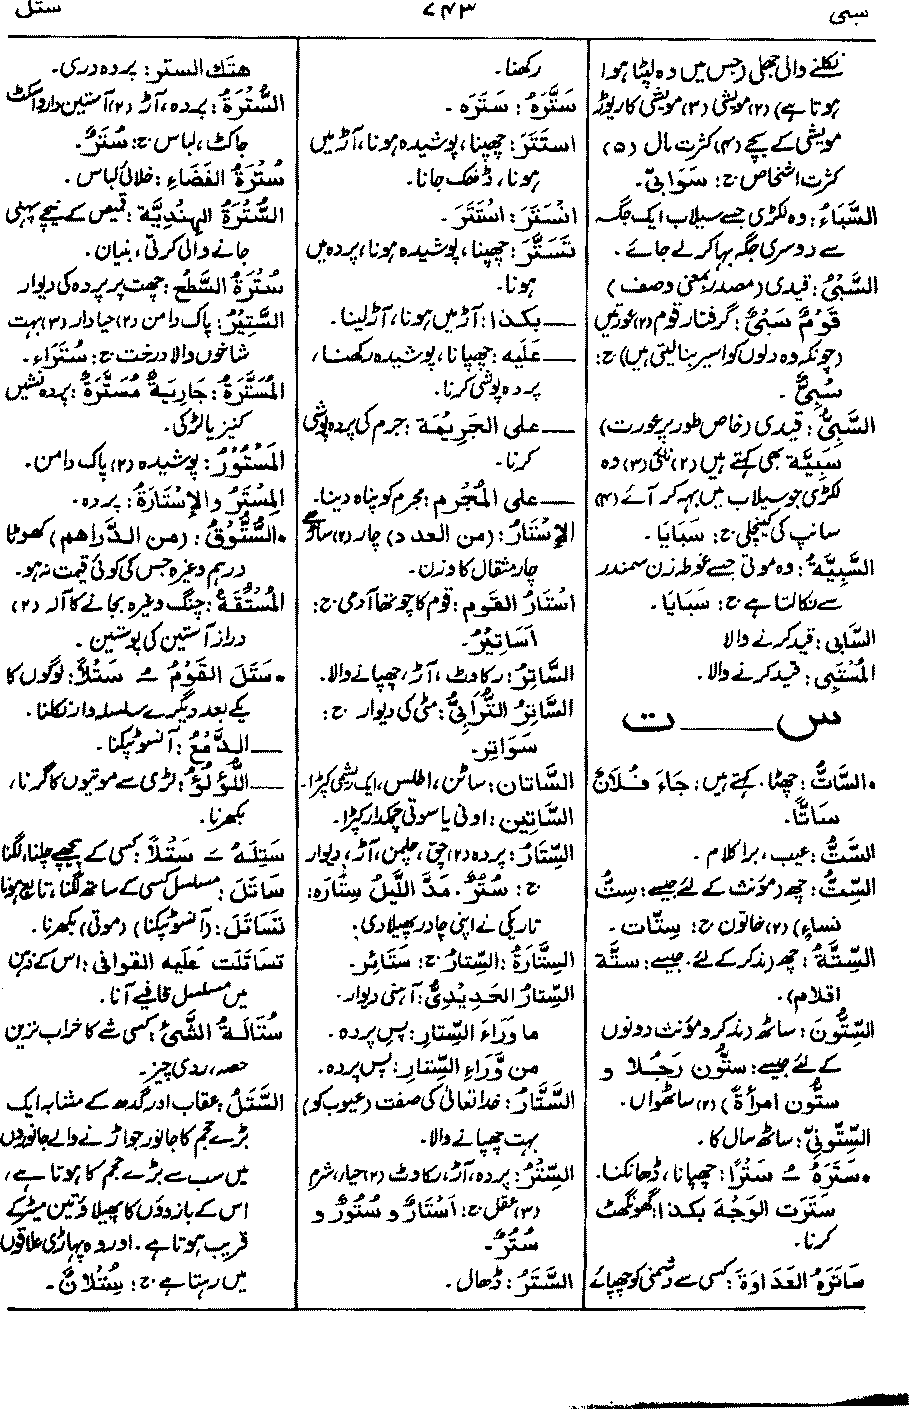 سبی
۷۴۳
ستل
نکلنے والی جھلی (جس میں وہ لپٹا ہوا
ہوتا ہے) (۲) مویشی (۳) مویشی کا ریوڑ
مویشی کے بچے (۴) کثرت مال (۵)
کثرت اشخاص ج: سَوَابِیُّ۔
السَّبَاءُ: وہ لکڑی جسے سیلاب ایک جگہ
سے دوسری جگہ بہا کر لے جائے۔
السَّبْیُ: قیدی (مصدر بمعنی وصف)
قَوْمٌ سَبْیٌ: گرفتار قوم (۲) عورتیں
(چونکہ وہ دلوں کو اسیر بنا لیتی ہیں) ج:
سُبِیٌّ۔
السَّبِیُّ: قیدی (خاص طور پر عورت)
سَبِیَّة بھی کہتے ہیں (۲) (۳) وہ
لکڑی جو سیلاب میں بہہ کر آئے (۴)
سانپ کی کینچلی ج: سَبَایَا۔
السَّبِیَّةُ: وہ موتی جسے غوطہ زن سمندر
سے نکالتا ہے ج: سَبَایَا۔
السَّابِی: قید کرنے والا
المُسْتَبِی: قید کرنے والا۔
س ــــ ت
•السَّاتُّ: چھٹا۔ کہتے ہیں: جَاءَ فُلَانٌ
سَاتًّا۔
السَّتُّ: عیب، برا کلام۔
السِّتُّ: چھ (مؤنث کے لئے جیسے: سِتُّ
نساءٍ) (۲) خاتون ج: سِتَّات۔
السِّتَّةُ: چھ (مذکر کے لئے۔ جیسے: ستَّة
اقلام)۔
السِّتُّونَ: ساٹھ (مذکر و مؤنث دونوں
کے لئے جیسے: ستُّون رَجُلا و
ستُّون امرأةً) (۲) ساٹھواں۔
السِّتُّونِیُّ: ساٹھ سال کا۔
•سَتَرَهُ ـُ سَتْرًا: چھپانا، ڈھانکنا۔
سَتَرَت الوَجْهَ بکذا: گھونگھٹ
کرنا۔
سَاتَرَهُ العَدَاوَةَ: کسی سے دشمنی کو چھپائے
رکھنا۔
سَتَّرَهُ: سَتَرَهُ۔
استَتَرَ: چھپنا، پوشیدہ ہونا، آڑ میں
ہونا، ڈھک جانا۔
انْسَتَرَ: استَتَرَ۔
تَسَتَّرَ: چھپنا، پوشیدہ ہونا، پردہ میں
ہونا۔
ــــ بکذا: آڑ میں ہونا، آڑ لینا۔
ــــ عَلَیه: چھپانا، پوشیدہ رکھنا،
پردہ پوشی کرنا۔
ــــ علی الجَرِیْمَة: جرم کی پردہ پوشی
کرنا۔
ــــ علی المُجْرِم: مجرم کو پناہ دینا۔
الإِسْتَارُ: (من العدد) چار (۲) ساڑھے
چار مثقال کا وزن۔
اسْتَارُ القَوم: قوم کا چوتھا آدمی ج:
اَسَاتِیْرُ۔
السَّاتِرُ: رکاوٹ، آڑ، چھپانے والا۔
السَّاتِرُ التُّرَابِیُّ: مٹی کی دیوار ج:
سَوَاتِر۔
السَّاتَان: ساٹن، اطلس، ایک ریشمی کپڑا۔
السَّاتِین: اونی یا سوتی چمکدار کپڑا۔
السِّتَارُ: پردہ (۲) چق، چلمن، آڑ، دیوار
ج: سُتُرٌ۔ مَدَّ اللَّیْلُ سِتَارَه:
تاریکی نے اپنی چادر پھیلا دی۔
السِّتَارَةُ: السِّتَارُ ج: سَتَائِر۔
السِّتَارُ الحَدِیْدِیُّ: آہنی دیوار۔
ما وَرَاءَ السِّتَارِ: پس پردہ۔
من وَّرَاءِ السِّتَارِ: پس پردہ۔
السَّتَّارُ: خدا تعالیٰ کی صفت (عیوب کو)
بہت چھپانے والا۔
السِّتْرُ: پردہ، آڑ، رکاوٹ (۲) حیا، شرم
(۳) عقل ج: اَسْتَارٌ و سُتُورٌ و
سُتُرٌ۔
السَّتَرُ: ڈھال۔
هتك الستر: پردہ دری۔
السُّتْرَةُ: پردہ، آڑ (۲) آستین دار واسکٹ
جاکٹ، لباس ج: سُتَرٌ۔
سُتْرَةُ الفَضَاءِ: خلائی لباس۔
السُّتْرَةُ الهِنْدِیَّة: قمیص کے نیچے پہنی
جانے والی کرتی، بنیان۔
سُتْرَةُ السَّطْحِ: چھت پر پردہ کی دیوار
السَّتِیْرُ: پاک دامن (۲) حیا دار (۳) بہت
شاخوں والا درخت ج: سُتَرَاء۔
المُسَتَّرَةُ: جَارِیَةٌ مُسَتَّرَةٌ: پردہ نشیں
کنیز یا لڑکی۔
المَسْتُوْرُ: پوشیدہ (۲) پاک دامن۔
المِسْتَرُ والإِسْتَارَةُ: پردہ۔
•السُّتُّوْقُ: (من الدَّراهم) کھوٹا
درہم وغیرہ جس کی کوئی قیمت نہ ہو۔
المُسْتُقَةُ: چنگ وغیرہ بجانے کا آلہ (۲)
دراز آستین کی پوستین۔
•سَتَلَ القَوْمُ ـُ سَتْلًا: لوگوں کا
یکے بعد دیگرے سلسلہ وار نکلنا۔
ــــ الدَّمْعُ: آنسو ٹپکنا۔
ــــ اللُّؤلُؤُ: لڑی سے موتیوں کا گرنا،
بکھرنا۔
سَتِلَهُ ـَ سَتَلًا: کسی کے پیچھے چلنا، لگنا
سَاتَلَ: مسلسل کسی کے ساتھ لگنا، تابع ہونا
تَسَاتَلَ: (آنسو ٹپکنا) (موتی) بکھرنا۔
تساتَلت علیه القوافی: اس کے ذہن
میں مسلسل قافیے آنا۔
سُتَالَةُ الشَّیْ: کسی شے کا خراب ترین
حصہ، ردی چیز۔
السَّتَلُ: عقاب اور گدھ کے مشابہ ایک
بڑے حجم کا جانور جو اڑنے والے جانوروں
میں سب سے بڑے حجم کا ہوتا ہے،
اس کے بازوؤں کا پھیلاؤ تین میٹر کے
قریب ہوتا ہے۔ اور وہ پہاڑی علاقوں
میں رہتا ہے ج: سُِتْلَانٌ۔